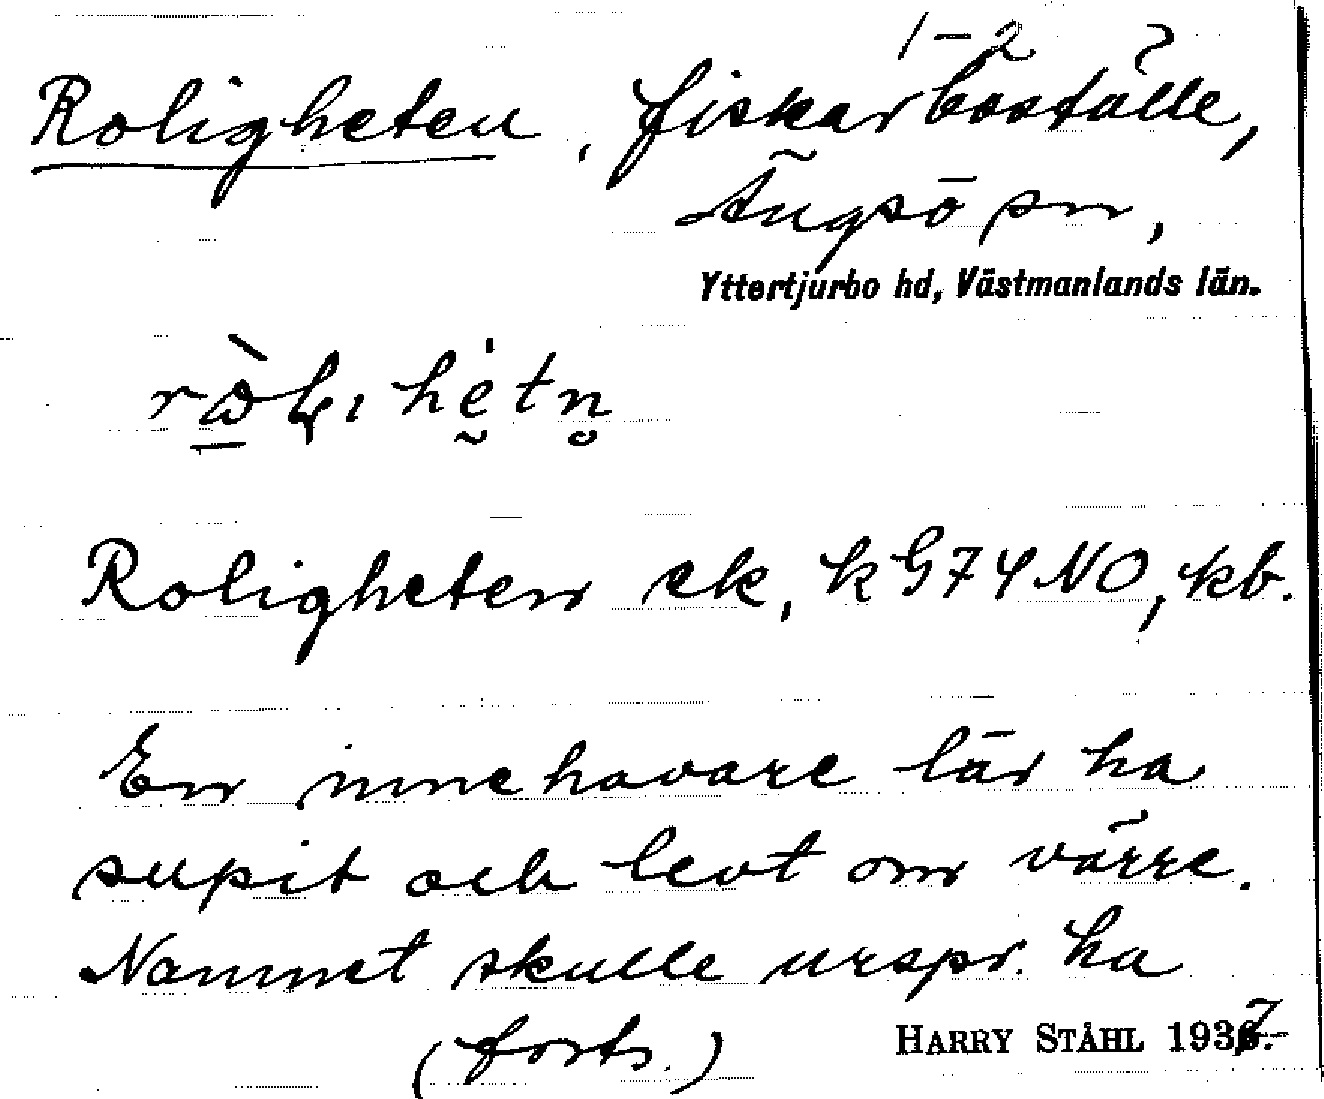 1-2
Roligheten, fiskarboställe,
Ängsö sn,
Yttertjurbo hd, Västmanlands län.
Roligheten ek, kG74NO, kb.
En innehavare lär ha
supit och levt om värre.
Namnet skulle urspr. ha
(forts.)
HARRY STÅHL 1937